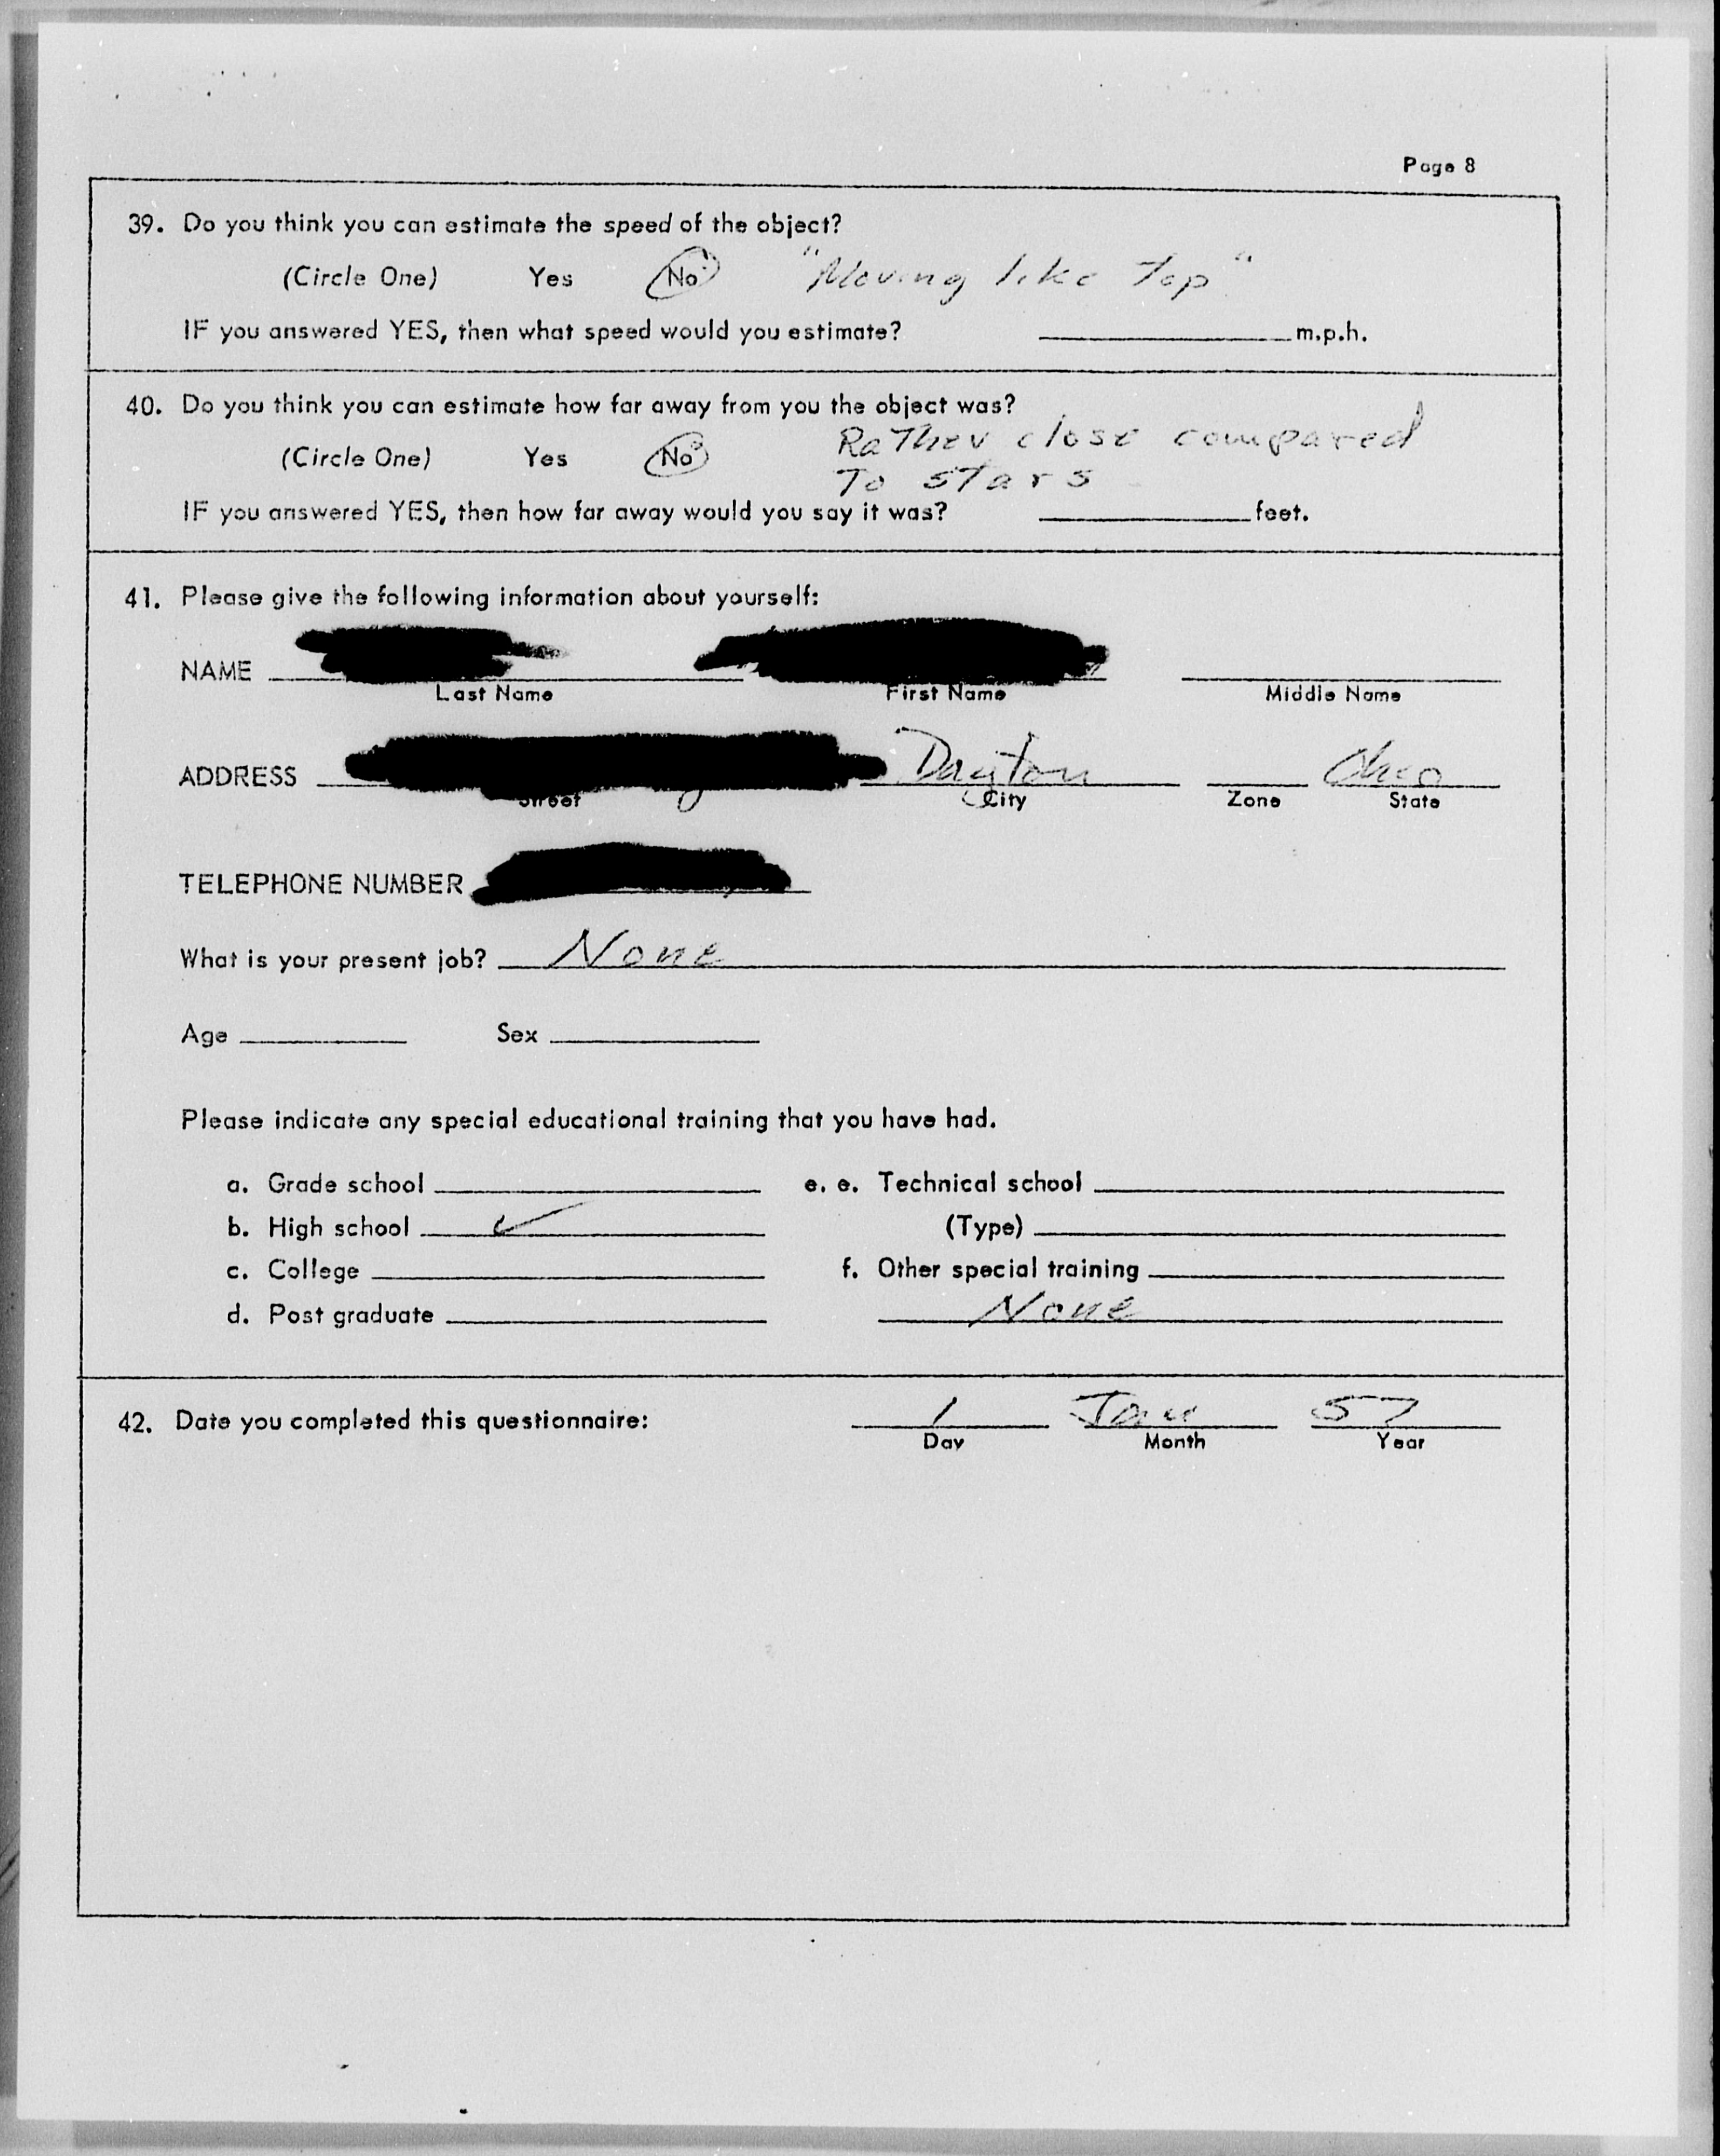 Page 8
39. Do you think you can estimate the speed of the object?
(Circle One) Yes No "Moving like top"
IF you answered YES, then what speed would you estimate? ____ m.p.h.
40. Do you think you can estimate how far away from you the object was?
(Circle One) Yes No Rather close compared
To stars
IF you answered YES, then how far away would you say it was? ____ feet.
41. Please give the following information about yourself:
NAME
Last Name First Name Middle Name
ADDRESS Dayton Ohio
Street City Zone State
TELEPHONE NUMBER
What is your present job? None
Age ____ Sex ____
Please indicate any special educational training that you have had.
a. Grade school ____ e. e. Technical school ____
b. High school ✓ (Type) ____
c. College ____ f. Other special training ____
d. Post graduate ____ None
42. Date you completed this questionnaire: 1 Jan 57
Day Month Year